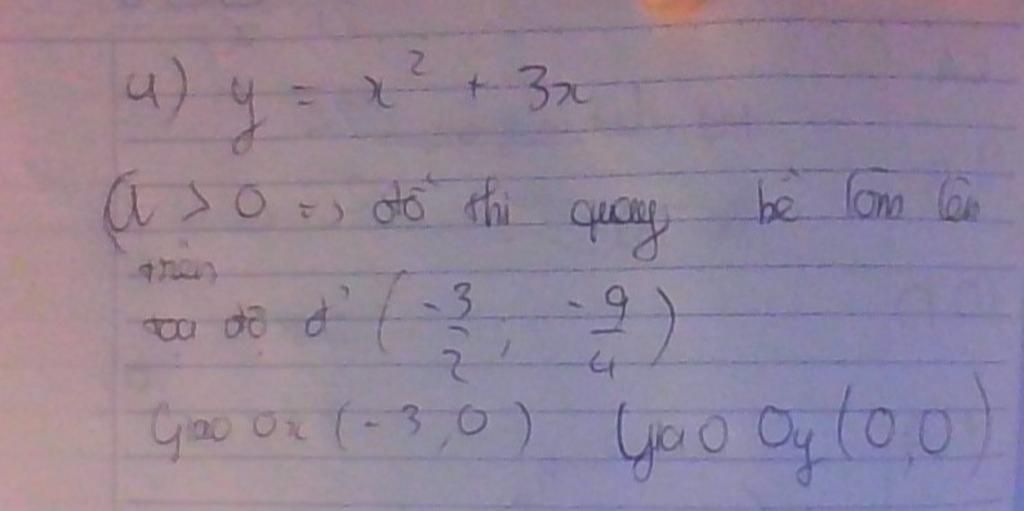 4) y = x² + 3x
a > 0 => đồ thị quay bề lõm lên
trên
toạ độ đỉ (-3/2; -9/4)
Giao Ox (-3,0) Giao Oy (0,0)